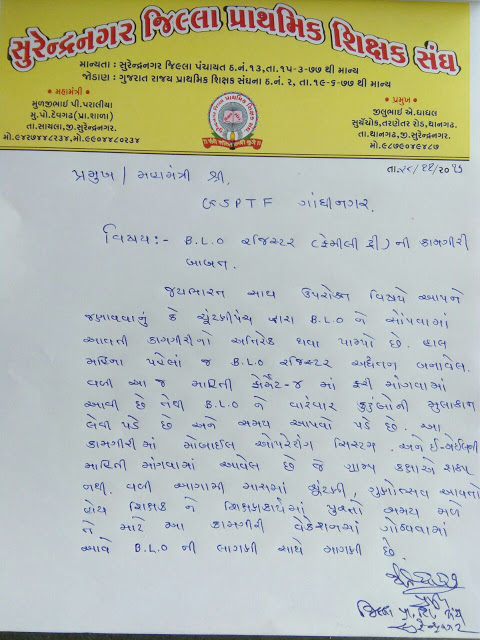 સુરેન્દ્રનગર જિલ્લા પ્રાથમિક શિક્ષક સંઘ
માન્યતા : સુરેન્દ્રનગર જિલ્લા પંચાયત ઠ.નં.૧૩,તા.૧૫-૩-૭૭ થી માન્ય
જોડાણ : ગુજરાત રાજ્ય પ્રાથમિક શિક્ષક સંઘના ઠ.નં. ૨, તા. ૧૯-૬-૭૭ થી માન્ય
• મહામંત્રી •
મુળજીભાઈ પી.પરાલીયા
મુ.પો.દેવગઢ(પ્રા.શાળા)
તા.સાયલા,જી.સુરેન્દ્રનગર.
મો.૯૪૨૭૪૪૮૨૩૪,મો.૯૯૦૪૪૮૦૨૩૪
• પ્રમુખ •
જીલુભાઈ એ.ધાધલ
સુર્યચોક,તરણેતર રોડ,થાનગઢ.
તા.થાનગઢ,જી.સુરેન્દ્રનગર.
મો.૯૮૭૯૦૪૯૪૮૭
પ્રમુખ / મહામંત્રી શ્રી,
GSPTF ગાંધીનગર.
વિષય:- B.L.O રજિસ્ટર (ફેમીલી ટ્રી) ની કામગીરી
બાબત.
જયભારત સાથ ઉપરોક્ત વિષયે આપને
જણાવવાનું કે ચૂંટણીપંચ દ્વારા B.L.O ને સોંપવામાં
આવતી કામગીરીનો અતિરેક થવા પામ્યો છે. હાલ
મહિના પહેલાં જ B.L.O રજિસ્ટર અદ્યતન બનાવેલ.
વળી આ જ માહિતી ફોર્મેટ-૪ માં ફરી માંગવામાં
આવી છે તેથી B.L.O ને વારંવાર કુટુંબોની મુલાકાત
લેવી પડે છે અને સમય આપવો પડે છે. આ
કામગીરીમાં મોબાઈલ ઓપરેટીંગ સિસ્ટમ અને ઈ-મેઈલની
માહિતી માંગવામાં આવેલ છે જે ગ્રામ્ય કક્ષાએ શક્ય
નથી. વળી આગામી માસમાં ચૂંટણી, ગુણોત્સવ આવતો
હોય શિક્ષક ને શિક્ષણકાર્યમાં પુરતો સમય મળે
તે માટે આ કામગીરી વેકેશનમાં ગોઠવવામાં
આવે B.L.O ની લાગણી સાથે માગણી છે.
પ્રમુખ
જિલ્લા પ્રા. શિ. સંઘ
સુરેન્દ્રનગર